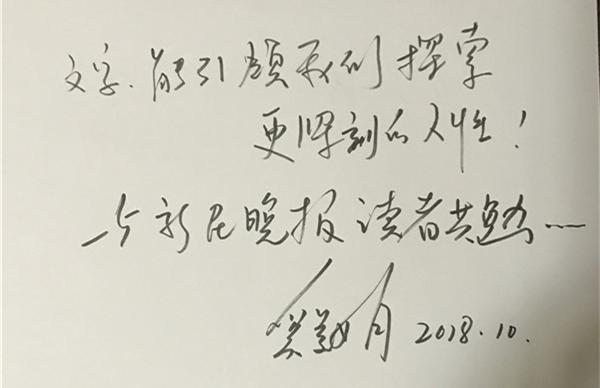 文字.能引领我们探索
更深刻的人性！
与新民晚报读者共勉……
2018.10.